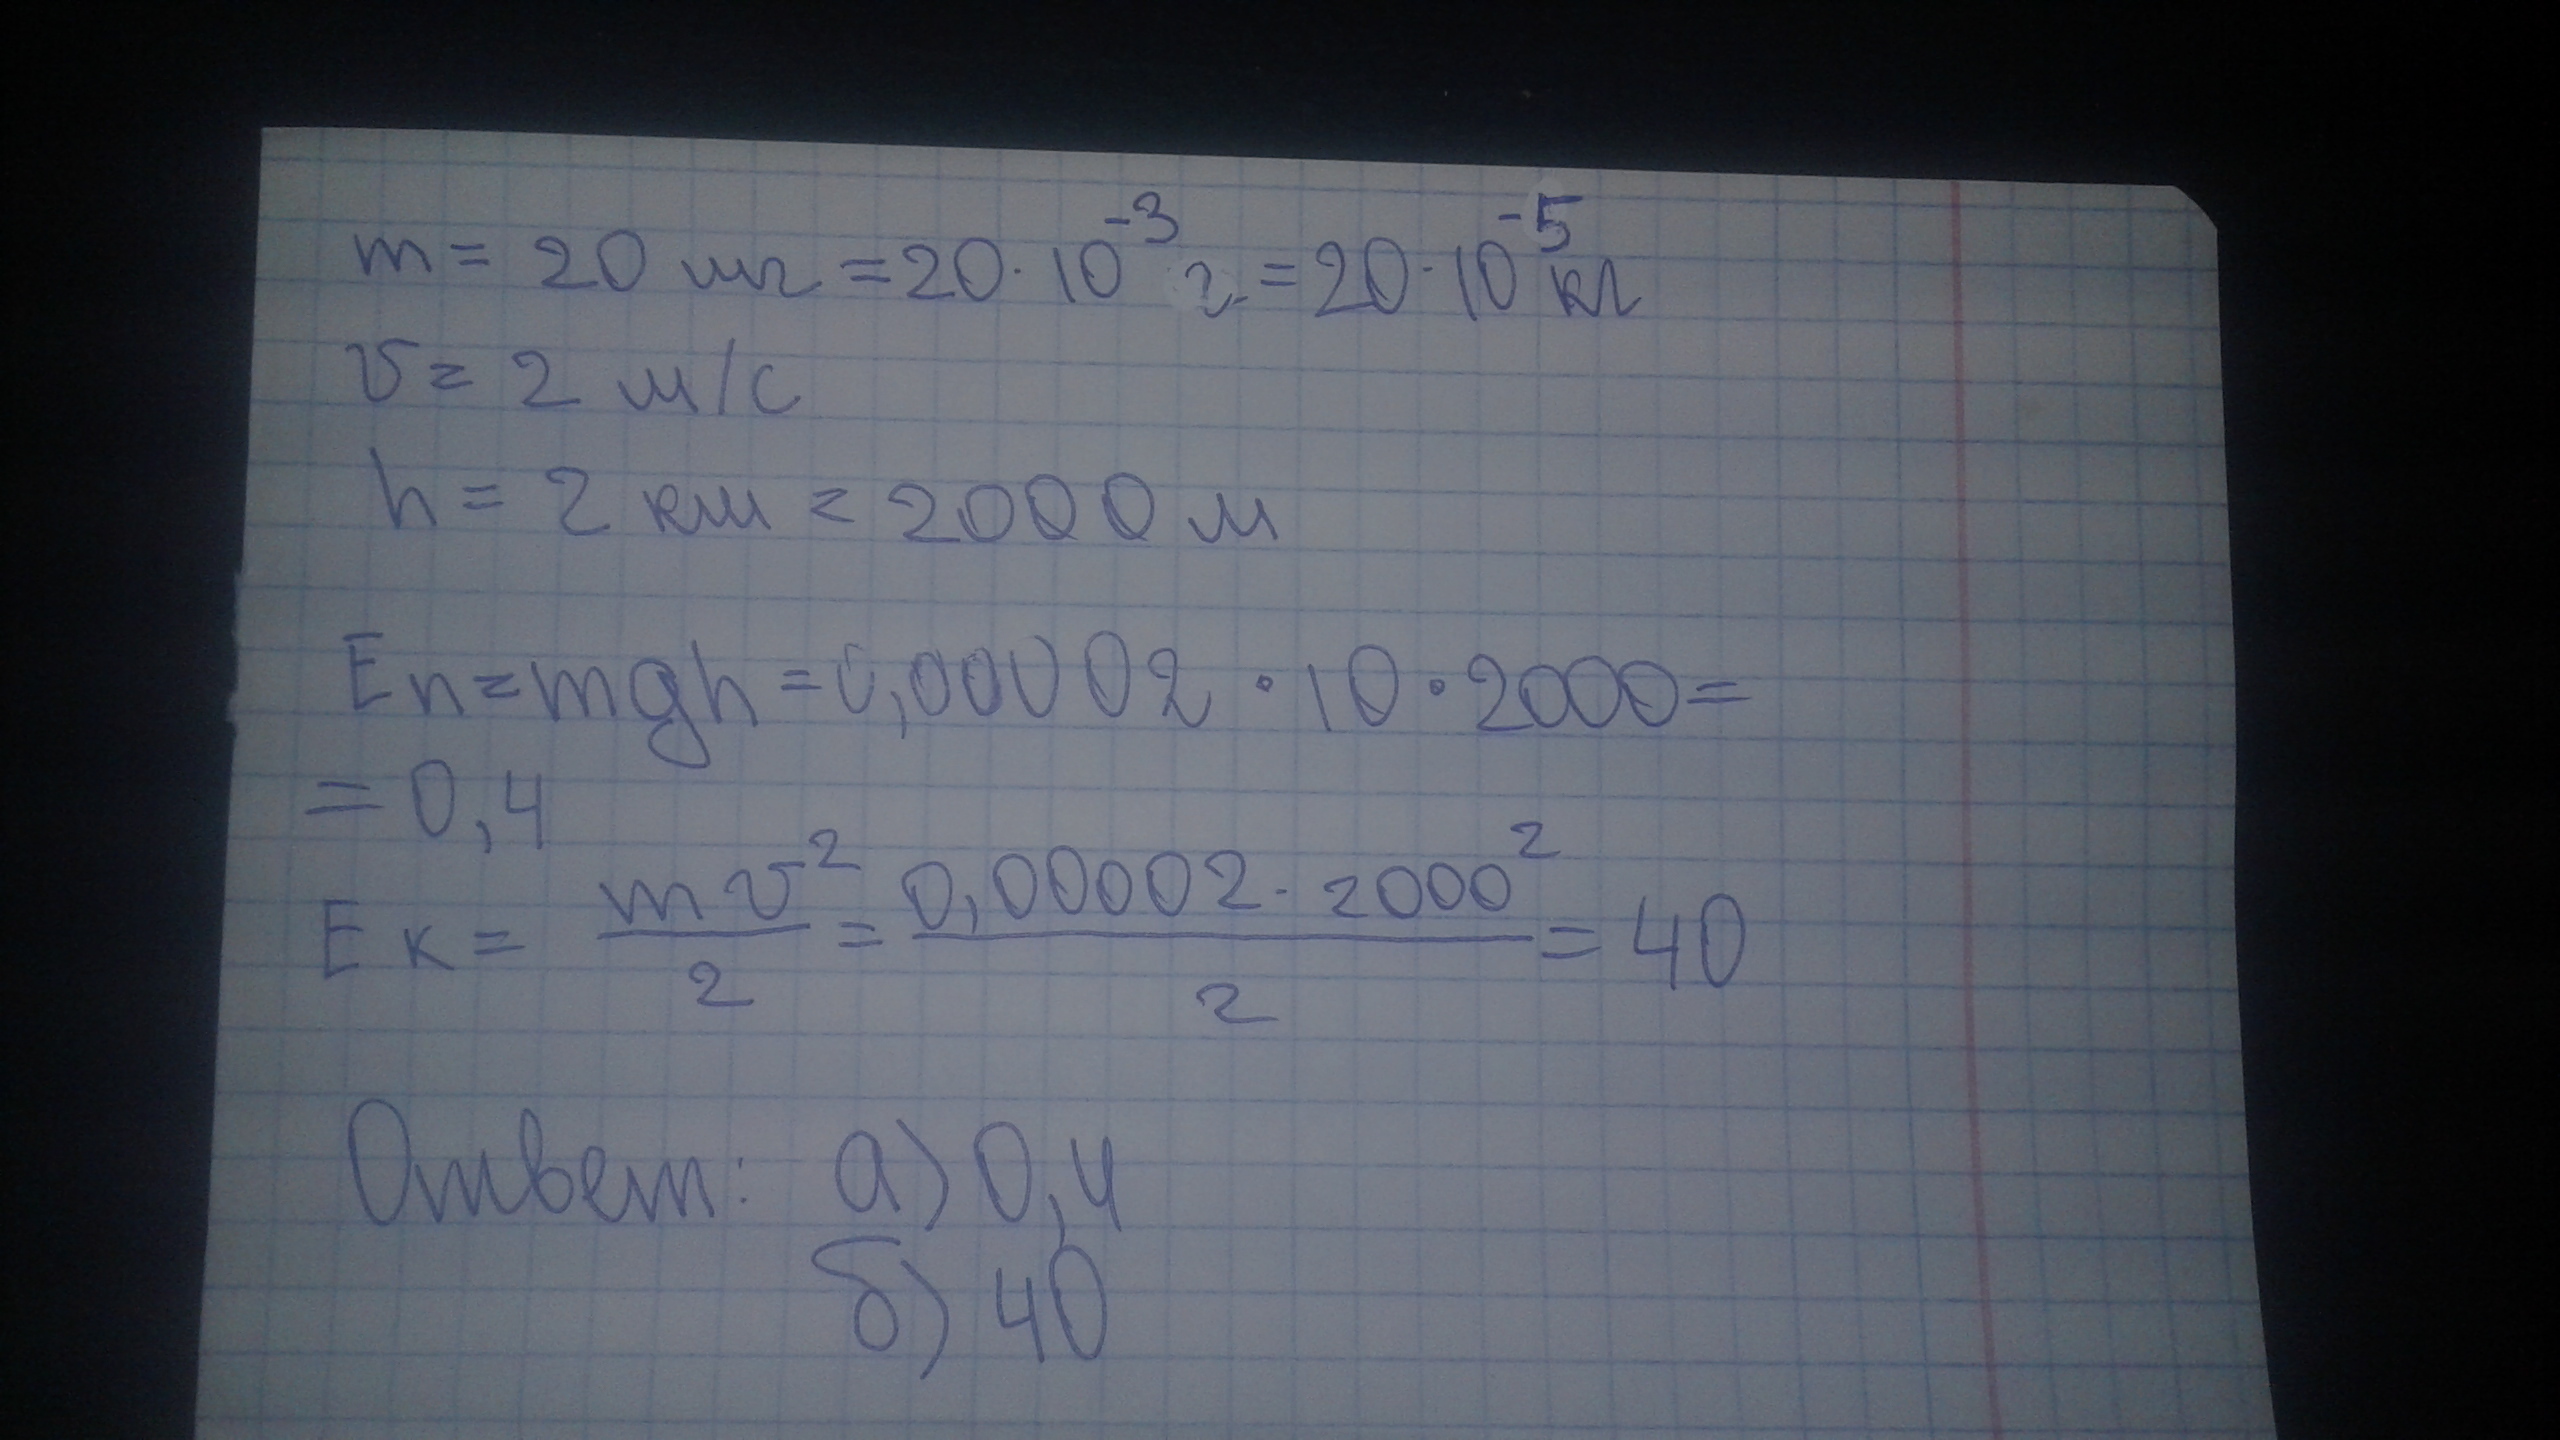 m = 20 мг = 20 · 10⁻³ г = 20 · 10⁻⁵ кг
v = 2 м/с
h = 2 км = 2000 м
Eп = mgh = 0,00002 · 10 · 2000 =
= 0,4
Eк = mv²/2 = 0,00002 · 2000²/2 = 40
Ответ: а) 0,4
б) 40